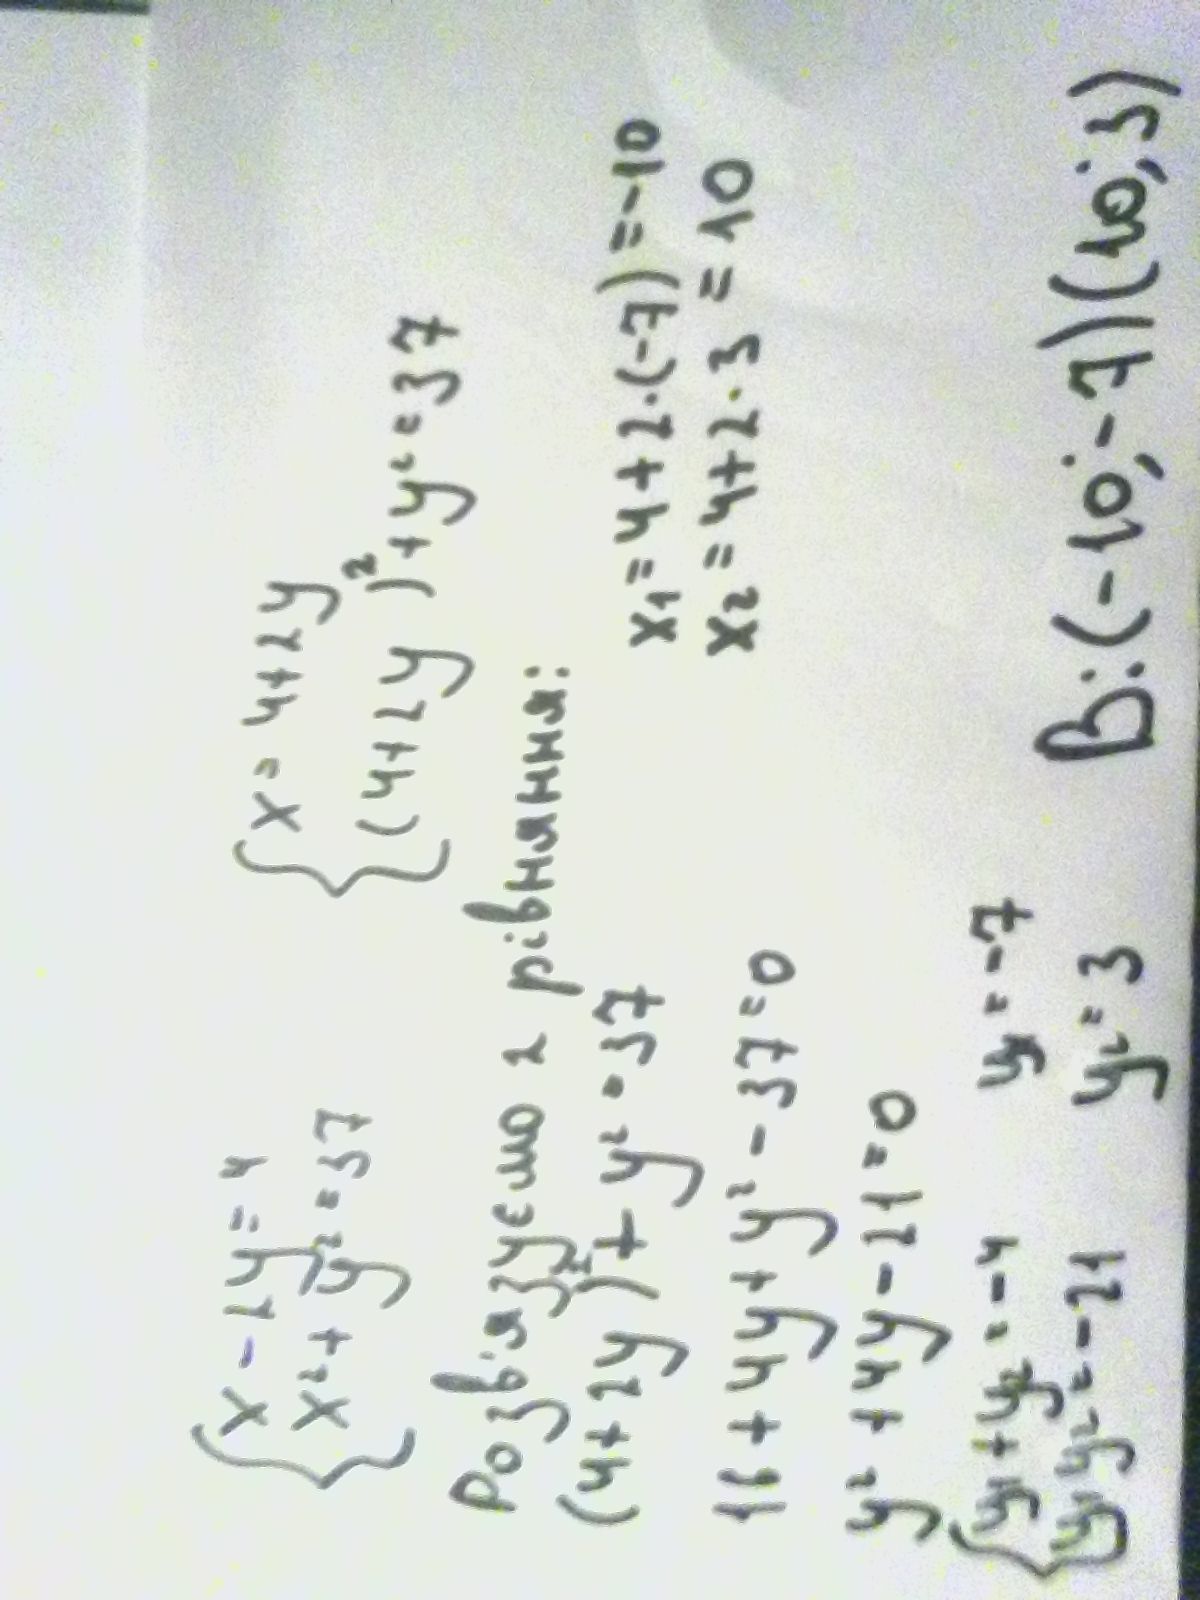 x - 2y = 4
x² + y² = 37
x = 4 + 2y
(4 + 2y)² + y² = 37
Розв'язуємо 2 рівняння:
(4 + 2y)² + y² = 37
16 + 4y + y² - 37 = 0
y² + 4y - 21 = 0
y₁ + y₂ = -4
y₁y₂ = -21
y₁ = -7
y₂ = 3
x₁ = 4 + 2·(-7) = -10
x₂ = 4 + 2·3 = 10
В: (-10; -7) (10; 3)